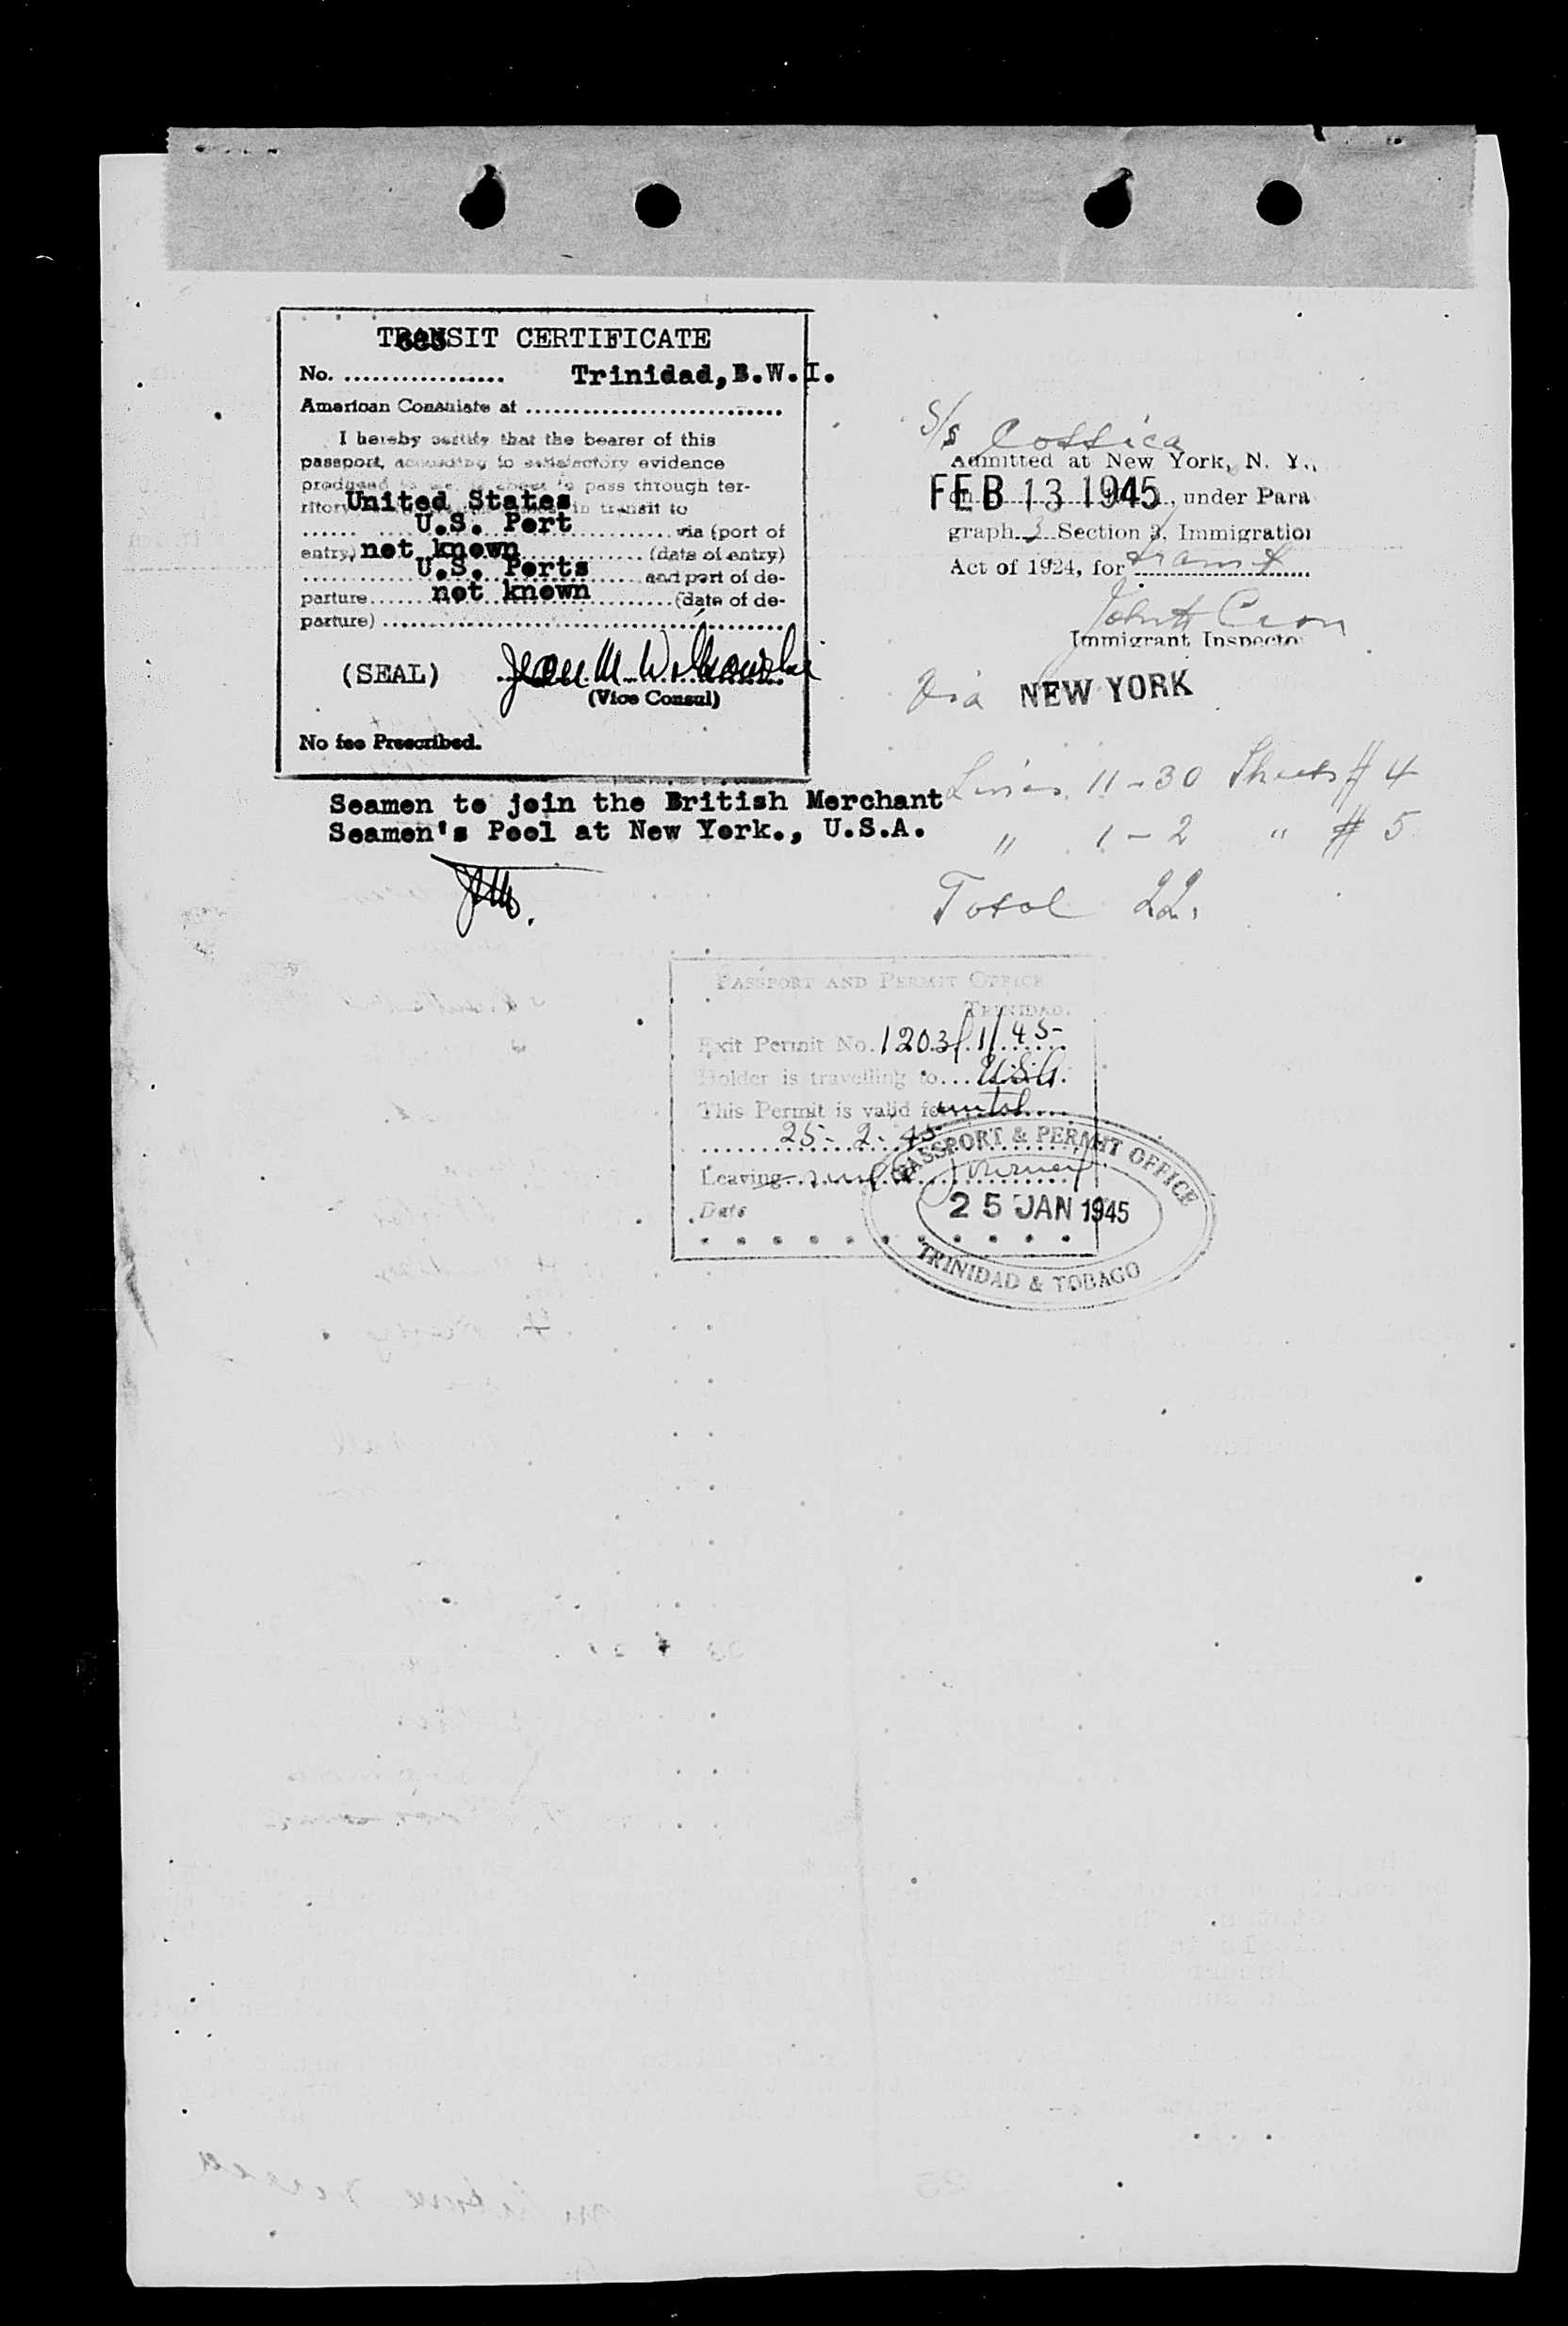 TRANSIT CERTIFICATE
No. .................. Trinidad, B.W.I.
American Consulate at ...........................
I hereby certify that the bearer of this
passport, according to satisfactory evidence
produced to me, is about to pass through ter-
ritory United States in transit to
...... U.S. Port ............ via (port of
entry) not known ............ (date of entry)
............ U.S. Ports ...... and port of de-
parture ...... not known ............ (date of de-
parture) ..........................................
(SEAL)
(Vice Consul)
No fee Prescribed.
Seamen to join the British Merchant
Seamen's Pool at New York., U.S.A.
S/s Cossica
Admitted at New York, N. Y.,
on FEB 13 1945, under Para
graph 3 Section 3, Immigration
Act of 1924, for transit
Immigrant Inspector
Via NEW YORK
Lines 11-30 Sheets # 4
" 1-2 " # 5
Total 22.
PASSPORT AND PERMIT OFFICE
TRINIDAD.
Exit Permit No. 1203/1/45
Holder is travelling to... U.S.A.
This Permit is valid for until
25-2-45
Leaving... Journey
Date
PASSPORT & PERMIT OFFICE
25 JAN 1945
TRINIDAD & TOBAGO